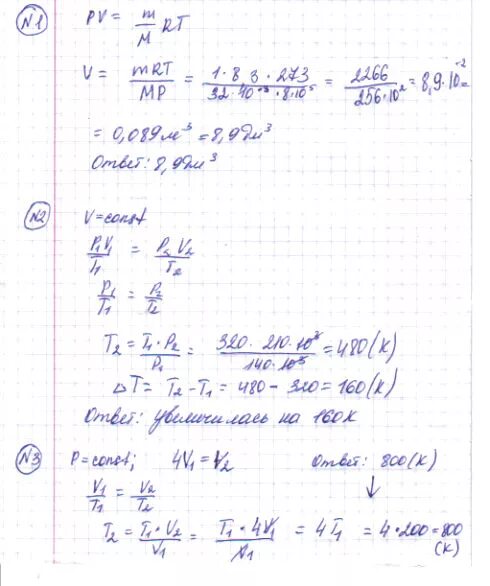 №1 PV = m/M RT
V = mRT/MP = 1·8,3·273/32·10⁻³·8·10⁵ = 2266/256·10² = 8,9·10⁻² =
= 0,089 м³ = 8,9 дм³
Ответ: 8,9 дм³
№2 V = const
P₁V₁/T₁ = P₂V₂/T₂
P₁/T₁ = P₂/T₂
T₂ = T₁·P₂/P₁ = 320·210·10³/140·10³ = 480 (К)
ΔT = T₂ - T₁ = 480 - 320 = 160 (К)
Ответ: увеличилась на 160К
№3 P = const; 4V₁ = V₂ Ответ: 800 (К)
↓
V₁/T₁ = V₂/T₂
T₂ = T₁·V₂/V₁ = T₁·4V₁/V₁ = 4T₁ = 4·200 = 800
(К)